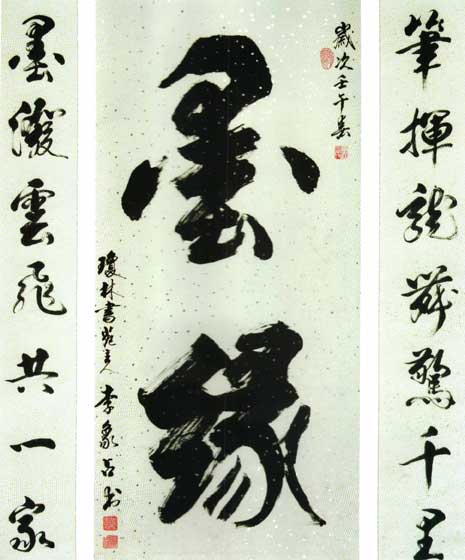 筆揮龍舞驚千里
歲次壬午春
墨緣
瓊林書苑主人 李象書
墨潑雲飛共一家